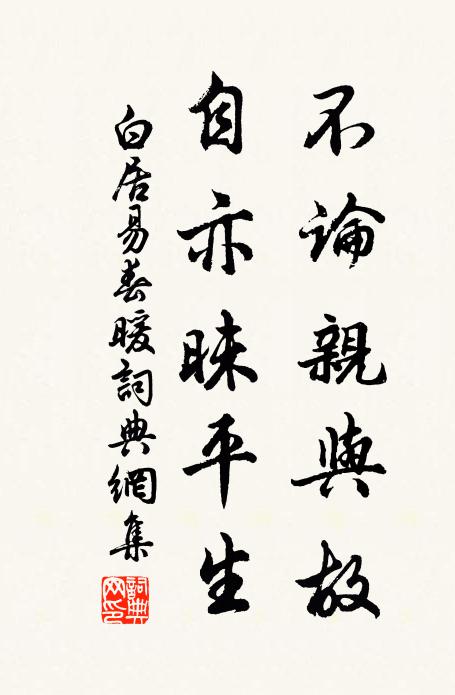 不論親與故
自亦昧平生
白居易春暖詞典網集
詞典網印